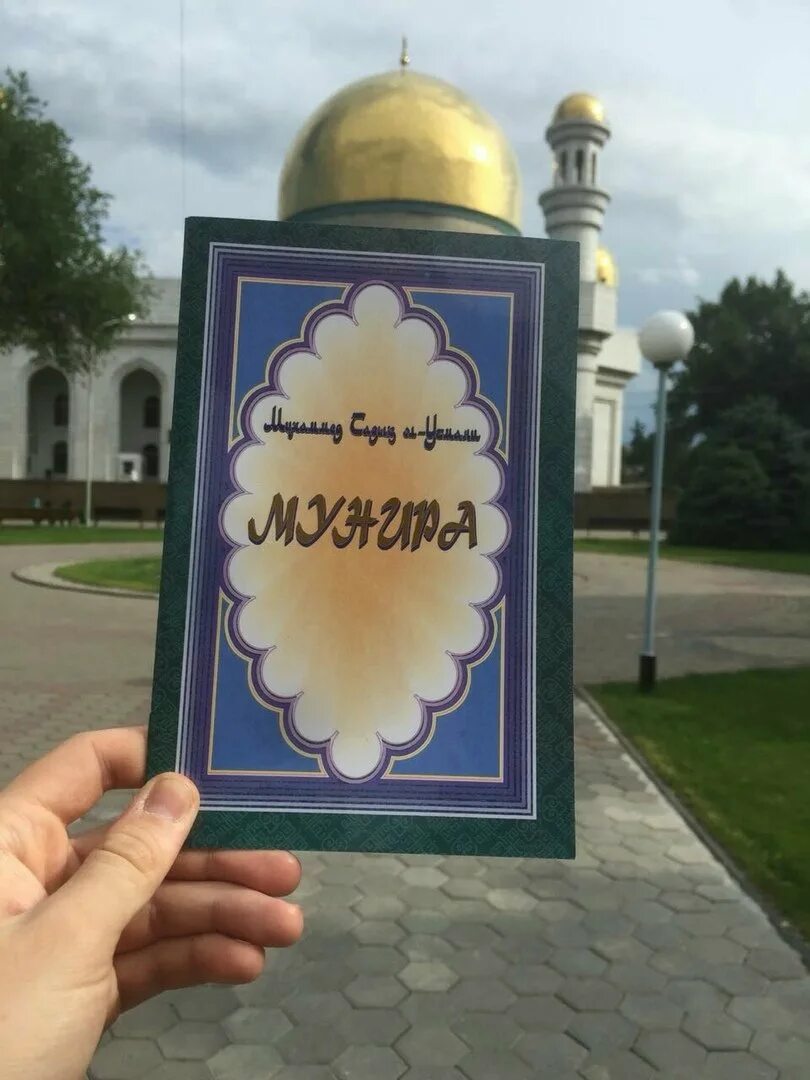 Мухаммед Садиқ әл-Усмани
МУНИРА